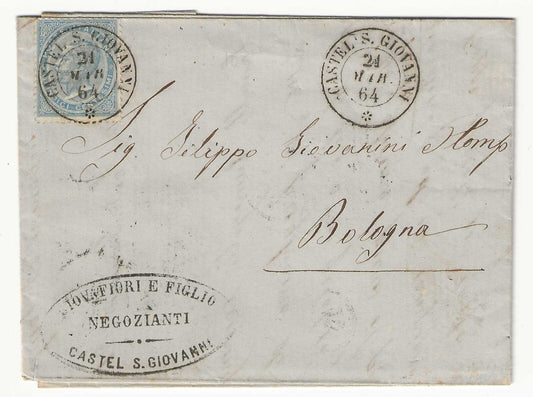 CASTEL S. GIOVANNI
21
MAR
64
CASTEL S. GIOVANNI
21
MAR
64
Sig. Filippo Giovanini Stamp
Bologna
E FIGLIO
NEGOZIANTI
CASTEL S. GIOVANNI